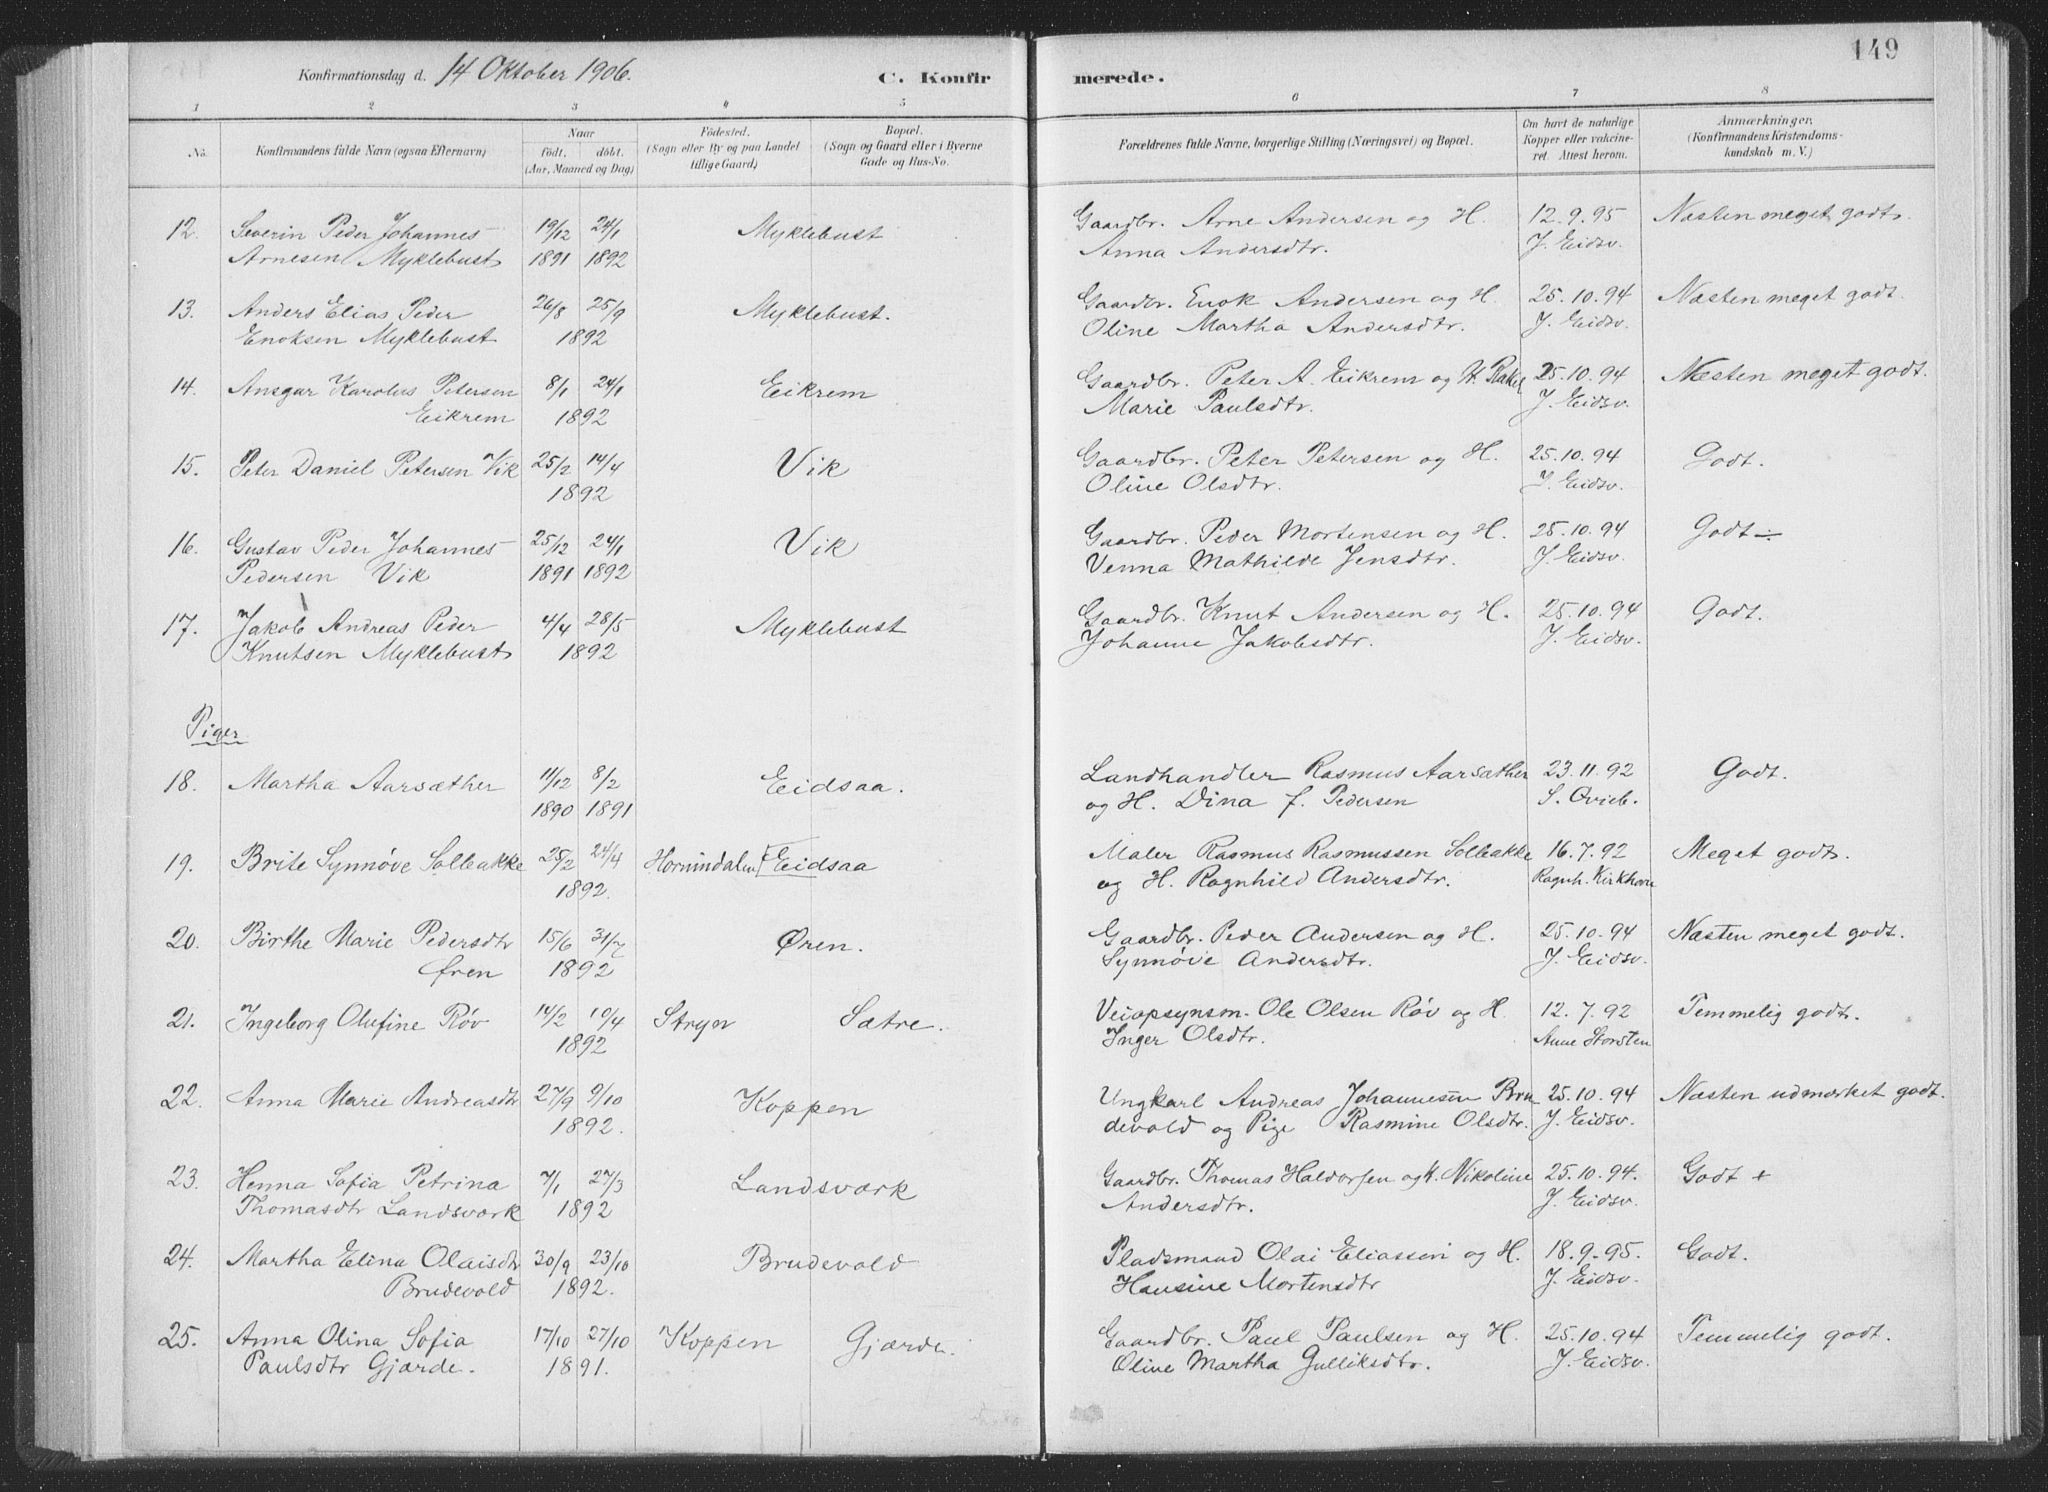 149
Konfirmationsdag d. 14 Oktober 1906. C. Konfirmerede.
1 2 3 4 5 6 7 8
No. Konfirmandens fulde Navn (ogsaa Efternavn) Naar født. døbt. (Aar, Maaned og Dag) Fødested. (Sogn eller By og paa Landet tillige Gaard) Bopæl. (Sogn og Gaard eller i Byerne Gade og Hus-No. Forældrenes fulde Navne, borgerlige Stilling (Næringsvei) og Bopæl. Om havt de naturlige Kopper eller vakcineret. Attest herom. Anmærkninger. (Konfirmandens Kristendomskundskab m. V.)
12. Severin Peder Johannes 19/12 24/1 Myklebust Gaardbr. Arne Andersen og H. 12.9.95 Næsten meget godt.
Arnesen Myklebust 1891 1892 Anna Andersdtr. J. Eidsv.
13. Anders Elias Peder 26/8 25/9 Myklebust. Gaardbr. Enok Andersen og H. 25.10.94 Næsten meget godt.
Enoksen Myklebust 1892 Oline Martha Andersdtr. J. Eidsv.
14. Ansgar Karolus Petersen 8/1 24/1 Eikrem Gaardbr. Peter A. Eikrem og H. Rakel 25.10.94 Næsten meget godt.
Eikrem 1892 Marie Paulsdtr. J. Eidsv.
15. Peter Daniel Petersen Vik 25/2 14/4 Vik Gaardbr. Peter Petersen og H. 25.10.94 Godt.
1892 Oline Olsdtr. J. Eidsv.
16. Gustav Peder Johannes 25/12 24/1 Vik Gaardbr. Peder Mortensen og H. 25.10.94 Godt ÷
Pedersen Vik 1891 1892 Venna Mathilde Jensdtr. J. Eidsv.
17. Jakob Andreas Peder 4/4 28/5 Myklebust Gaardbr. Knut Andersen og H. 25.10.94 Godt.
Knutsen Myklebust 1892 Johanne Jakobsdtr. J. Eidsv.
Piger
18. Martha Aarsæther 11/12 8/2 Eidsaa. Landhandler Rasmus Aarsæther 23.11.92 Godt.
1890 1891 og H. Dina f. Pedersen S.
19. Brite Synnøve Solleakke 25/2 24/4 Hornindalen Eidsaa Maler Rasmus Rasmussen Solleakke 16.7.92 Meget godt.
1892. og H. Ragnhild Andersdtr. Ragnh. Kirkhorn
20. Birthe Marie Pedersdtr 15/6 31/7 Øren. Gaardbr. Peder Andersen og H. 25.10.94 Næsten meget godt.
Øren 1892 Synnøve Andersdtr. J. Eidsv.
21. Ingeborg Olufine Røv 14/2 10/4 Stryn Sætre. Veiopsynsm. Ole Olsen Røv og H. 12.7.92 Temmelig godt.
1892 Inger Olsdtr. Anne Storsten
22. Anna Marie Andreasdtr 27/9 9/10 Koppen Ungkarl Andreas Johannessen Bru 25.10.94 Næsten udmærket godt.
1892. devold og Pige Rasmine Olsdtr. J. Eidsv.
23. Henna Sofia Petrina 7/1 27/3 Landsværk Gaardbr. Thomas Haldorsen og H. Nikoline 25.10.94. Godt +
Thomasdtr Landsværk 1892 Andersdtr. J. Eidsv.
24. Martha Elina Olaisdtr 30/9 23/10 Brudevold Pladsmand Olai Eliassen og H. 18.9.95. Godt.
Brudevold 1892. Hansine Mortensdtr J. Eidsv.
25. Anna Olina Sofia 17/10 27/10 Koppen Gjærde. Gaardbr. Paul Paulsen og H. 25.10.94 Temmelig godt.
Paulsdtr Gjærde. 1891. Oline Martha Gulliksdtr. J. Eidsv.